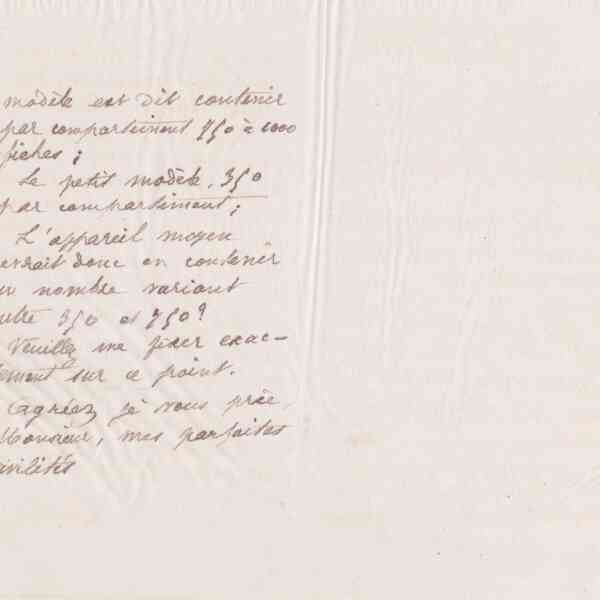 modèle est dit contenir
par compartiment 750 à 1000
fiches ;
Le petit modèle, 350
par compartiment ;
L'appareil moyen
devrait donc en contenir
un nombre variant
entre 350 et 750 ?
Veuillez me fixer exac-
tement sur ce point.
Agréez, je vous prie,
Monsieur, mes parfaites
civilités